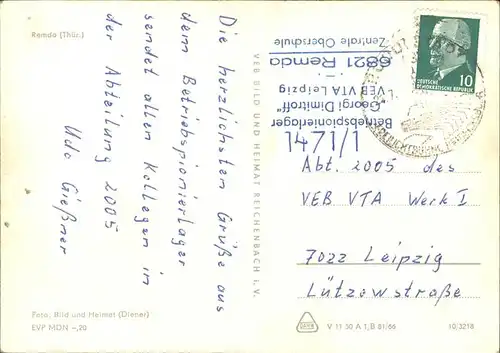 Remda (Thür.)
Die herzlichsten Grüße aus
dem Betriebspionierlager
sendet allen Kollegen in
der Abteilung 2005
Udo Gießner
Foto: Bild und Heimat (Diener)
EVP MDN -,20
VEB BILD UND HEIMAT REICHENBACH I. V.
Betriebspionierlager
"Georgi Dimitroff"
VEB VTA Leipzig
6821 Remda
Zentrale Oberschule
1471/1
DEUTSCHE
DEMOKRATISCHE REPUBLIK
10
Abt. 2005 des
VEB VTA Werk I
7022 Leipzig
Lützowstraße
V 11 50 A 1, B 81/66
10/3218